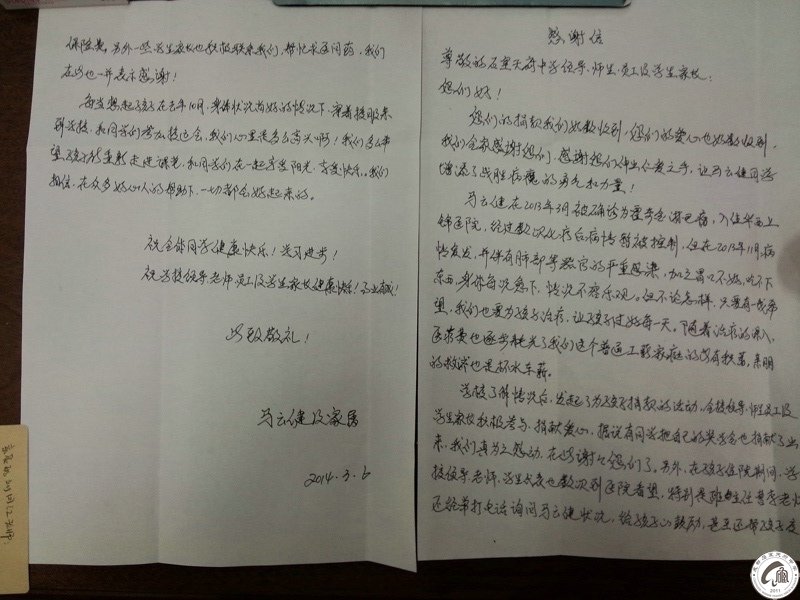 感谢信
尊敬的石室天府中学领导、师生、员工及学生家长:
您们好!
您们的捐款我们如数收到,您们的爱心也如数收到,
我们全家感谢您们,感谢您们伸出仁爱之手,让马云健同学
增添了战胜病魔的勇气和力量!
马云健在2013年3月被确诊为霍奇金淋巴病,入住华西上
锦医院,经过数次化疗后病情暂被控制,但在2013年11月病
情复发,并伴有肺部等器官的严重感染,加之胃口不好,吃不下
东西,身体每况愈下,情况不容乐观。但不论怎样,只要有一线希
望,我们也要为孩子治疗,让孩子过好每一天。随着治疗的深入,
医药费也逐步耗光了我们这个普通工薪家庭的所有积蓄,亲朋
的救济也是杯水车薪。
学校了解情况后,发起了为孩子捐款的活动,全校领导、师生员工及
学生家长积极参与,捐献爱心,据说有同学把自己的奖学金也捐献了出
来,我们真为之感动,在此谢谢您们了。另外,在孩子住院期间,学
校领导、老师、学生代表也数次到医院看望,特别是班主任曹李老师
还经常打电话询问马云健状况,给孩子以鼓励,甚至还帮孩子交
保险费。另外一些学生家长也积极联系我们,帮忙求医问药,我们
在此也一并表示感谢!
每当想起孩子在去年10月,身体状况尚好的情况下,穿着校服来
到学校,和同学们参加校运会,我们心里是多么高兴啊!我们多么希
望孩子能重新走进课堂,和同学们在一起享受阳光,享受快乐。我们
相信,在众多好心人的帮助下,一切都会好起来的。
祝全体同学健康快乐!学习进步!
祝学校领导老师员工及学生家长健康快乐!事业有成!
此致敬礼!
马云健及家属
2014.3.6
2011